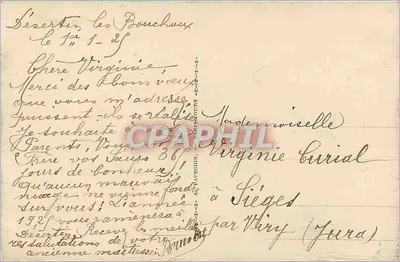 Désertin les Bouchoux
le 1er 1-25
Chère Virginie,
Merci des bons voeux
que vous m'adressez
puissent-ils se réaliser
Je souhaite à
Parents, Vous
Frère vos Soeurs 365
jours de bonheur!
qu'aucun mauvais
nuage ne vienne fondre
sur vous! L'année
1925 vous ramènera à
Désertin. Recevez les meilleu
res salutations de votre
ancienne maîtresse
Mademoiselle
Virginie Curial
à Siéges
par Viry (Jura)
CPARAMA